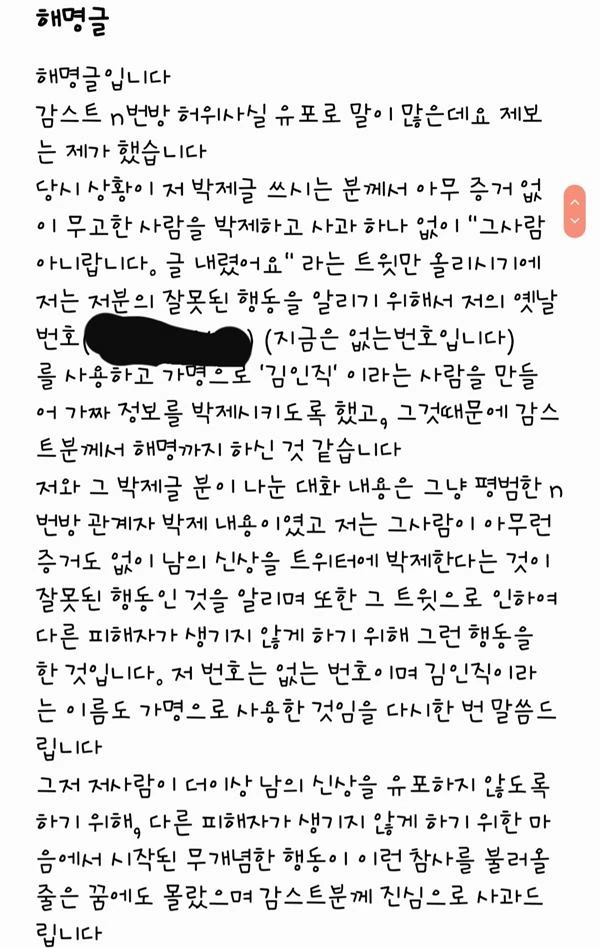 해명글
해명글입니다
감스트 n번방 허위사실 유포로 말이 많은데요 제보
는 제가 했습니다
당시 상황이 저 박제글 쓰시는 분께서 아무 증거 없
이 무고한 사람을 박제하고 사과 하나 없이 "그사람
아니랍니다. 글 내렸어요" 라는 트윗만 올리시기에
저는 저분의 잘못된 행동을 알리기 위해서 저의 옛날
번호( ) (지금은 없는번호입니다)
를 사용하고 가명으로 '김인직' 이라는 사람을 만들
어 가짜 정보를 박제시키도록 했고, 그것때문에 감스
트분께서 해명까지 하신 것 같습니다
저와 그 박제글 분이 나눈 대화 내용은 그냥 평범한 n
번방 관계자 박제 내용이였고 저는 그사람이 아무런
증거도 없이 남의 신상을 트위터에 박제한다는 것이
잘못된 행동인 것을 알리며 또한 그 트윗으로 인하여
다른 피해자가 생기지 않게 하기 위해 그런 행동을
한 것입니다. 저 번호는 없는 번호이며 김인직이라
는 이름도 가명으로 사용한 것임을 다시한 번 말씀드
립니다
그저 저사람이 더이상 남의 신상을 유포하지 않도록
하기 위해, 다른 피해자가 생기지 않게 하기 위한 마
음에서 시작된 무개념한 행동이 이런 참사를 불러올
줄은 꿈에도 몰랐으며 감스트분께 진심으로 사과드
립니다